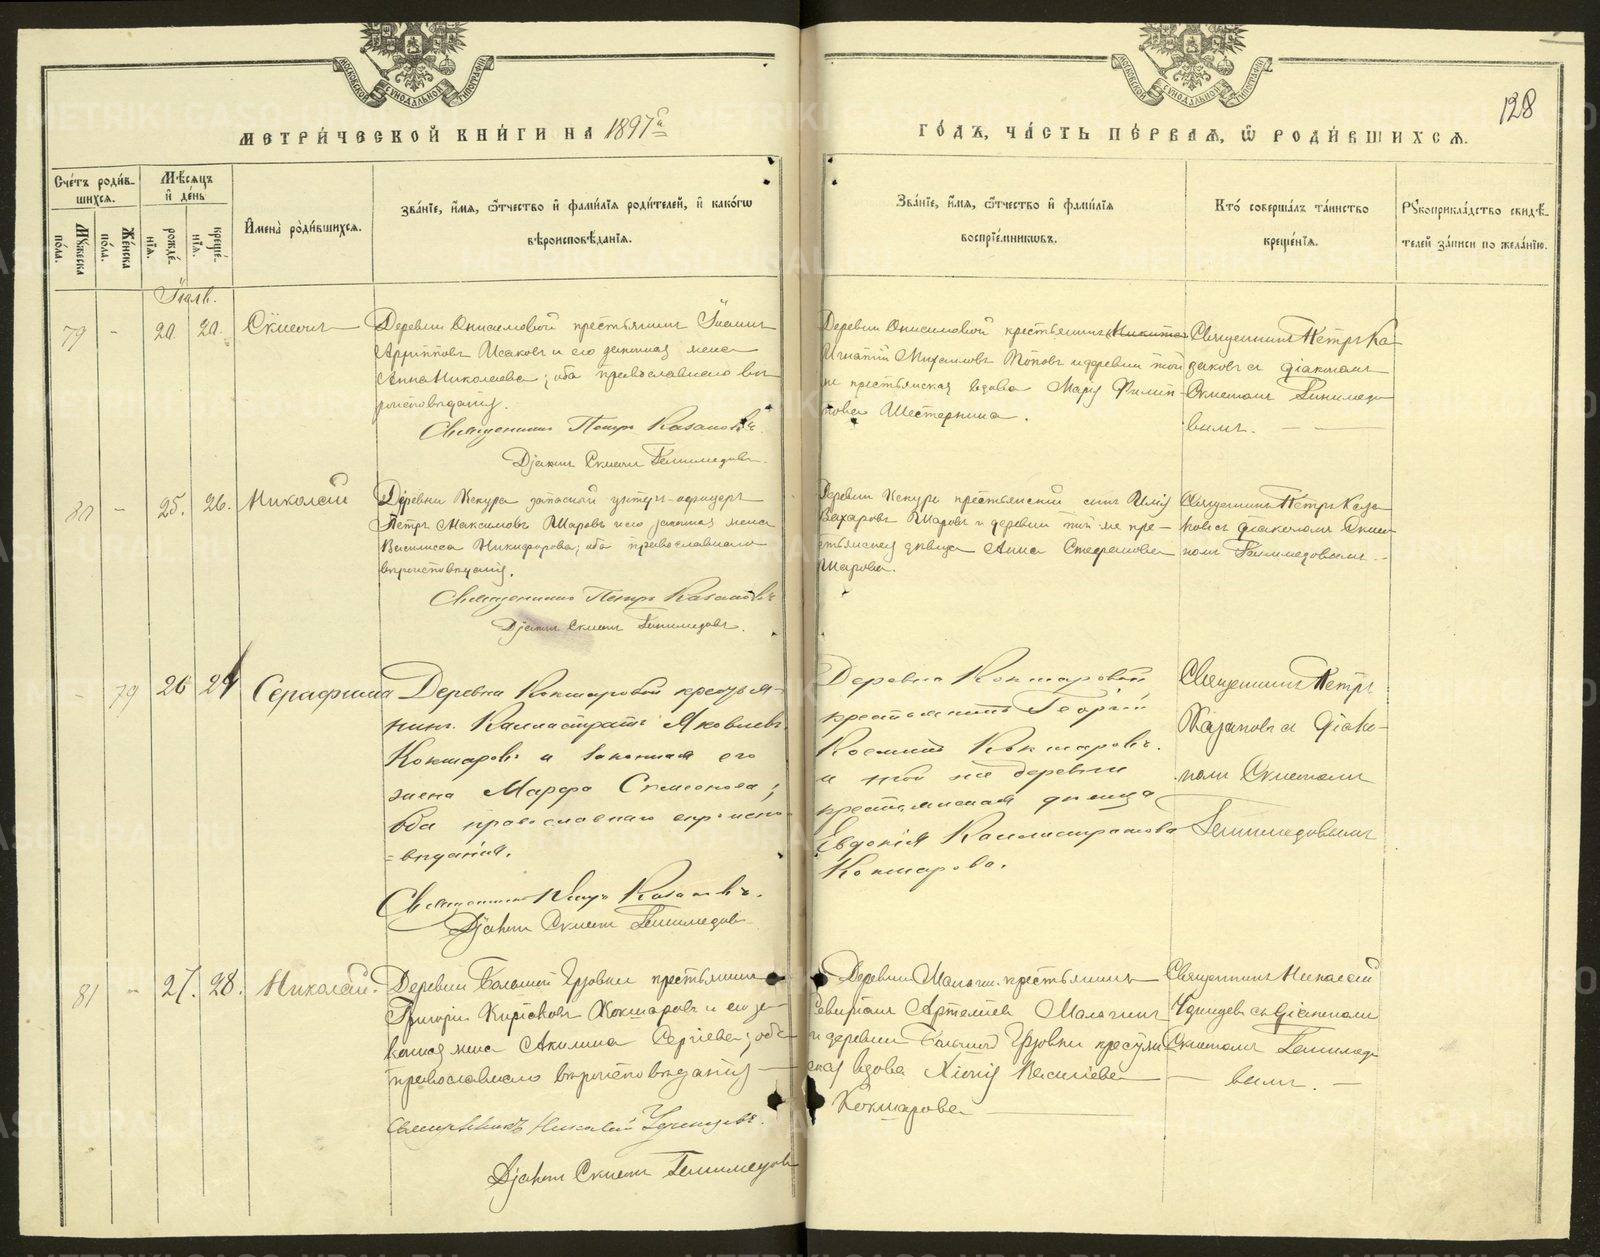 МОСКОВСКОЙ СѴНОДАЛЬНОЙ ТИПОГРАФІИ
МОСКОВСКОЙ СѴНОДАЛЬНОЙ ТИПОГРАФІИ
128
МЕТРИ́ЧЕСКОЙ КНИ́ГИ НА 1897 й
ГО́ДЪ, ЧА́СТЬ ПЕ́РВАѦ, Ѽ РОДИ́ВШИХСѦ.
Сче́тъ роди́в-
шихсѧ.
Мꙋ́жеска по́ла.
Же́нска по́ла.
Мѣ́сѧцъ
и҆ де́нь
рожде́-
нїѧ.
креще́-
нїѧ.
И҆мена̀ роди́вшихсѧ.
Зва́нїе, и҆́мѧ, ѻ҆́тчество и҆ фами́лїѧ роди́телей, и҆ како́гѡ
вѣроисповѣ́данїѧ.
Зва́нїе, и҆́мѧ, ѻ҆́тчество и҆ фами́лїѧ
воспрїе́мникѡвъ.
Кто̀ соверша́лъ та́инство
креще́нїѧ.
Рꙋкоприкла́дство свидѣ́-
телей за́писи по жела́нїю.
Іюль.
79
-
20.
20.
Сѵмеонъ
Деревни Онисимовой крестьянинъ Іоаннъ
Архипповъ Исаковъ и его законная жена
Анна Николаева; оба православнаго въ-
роисповѣданія.
Священникъ Петръ Казановъ.
Діаконъ Сѵмеонъ
Деревни Онисимовой крестьянинъ Никита
Игнатій Михаиловъ Поповъ и деревни той
же крестьянская вдова Марія Филип-
пова Шестернина.
Священникъ Петръ Ка-
зановъ съ діакономъ
Сѵмеономъ
вымъ.
80
-
25.
26.
Николай
Деревни Кекура запасный унтеръ-офицеръ
Петръ Максимовъ Шаровъ и его законная жена
Василисса Никифорова; оба православнаго
вѣроисповѣданія.
Священникъ Петръ Казановъ
Діаконъ Сѵмеонъ
Деревни Кекура крестьянскій сынъ Илія
Захаровъ Шаровъ и деревни той же кре-
стьянская дѣвица Анна Стефанова
Шарова.
Священникъ Петръ Каза-
новъ съ діакономъ Сѵмео-
номъ
-
79
26
27
Серафима
Деревна Кокшаровой крестья-
нинъ Каллистратъ Яковлевъ
Кокшаровъ и законная его
жена Марфа Симеонова;
оба православнаго вѣроиспо-
=вѣданія.
Священникъ Петръ Казановъ.
Діаконъ Сѵмеонъ
Деревна Кокшаровой
крестьянинъ Георгій
Козминъ Кокшаровъ.
и той же деревни
крестьянская дѣвица
Евдокія Каллистратова
Кокшарова.
Священникъ Петръ
Казановъ съ діако-
номъ Сѵмеономъ
81
-
27.
28.
Николай.
Деревни Большой Ерзовки крестьянинъ
Григорій Киріаковъ Кокшаровъ и его за-
конная жена Акилина Сергіева; оба
православнаго вѣроисповѣданія
Священникъ Николай
Діаконъ Сѵмеонъ
Деревни Малагинъ крестьянинъ
Северіанъ Артеміевъ Малагинъ
и деревни Большой Ерзовки крестьян-
ская вдова Хіонія Васильева
Кокшарова
Священникъ Николай
съ діакономъ
Сѵмеономъ
вымъ.